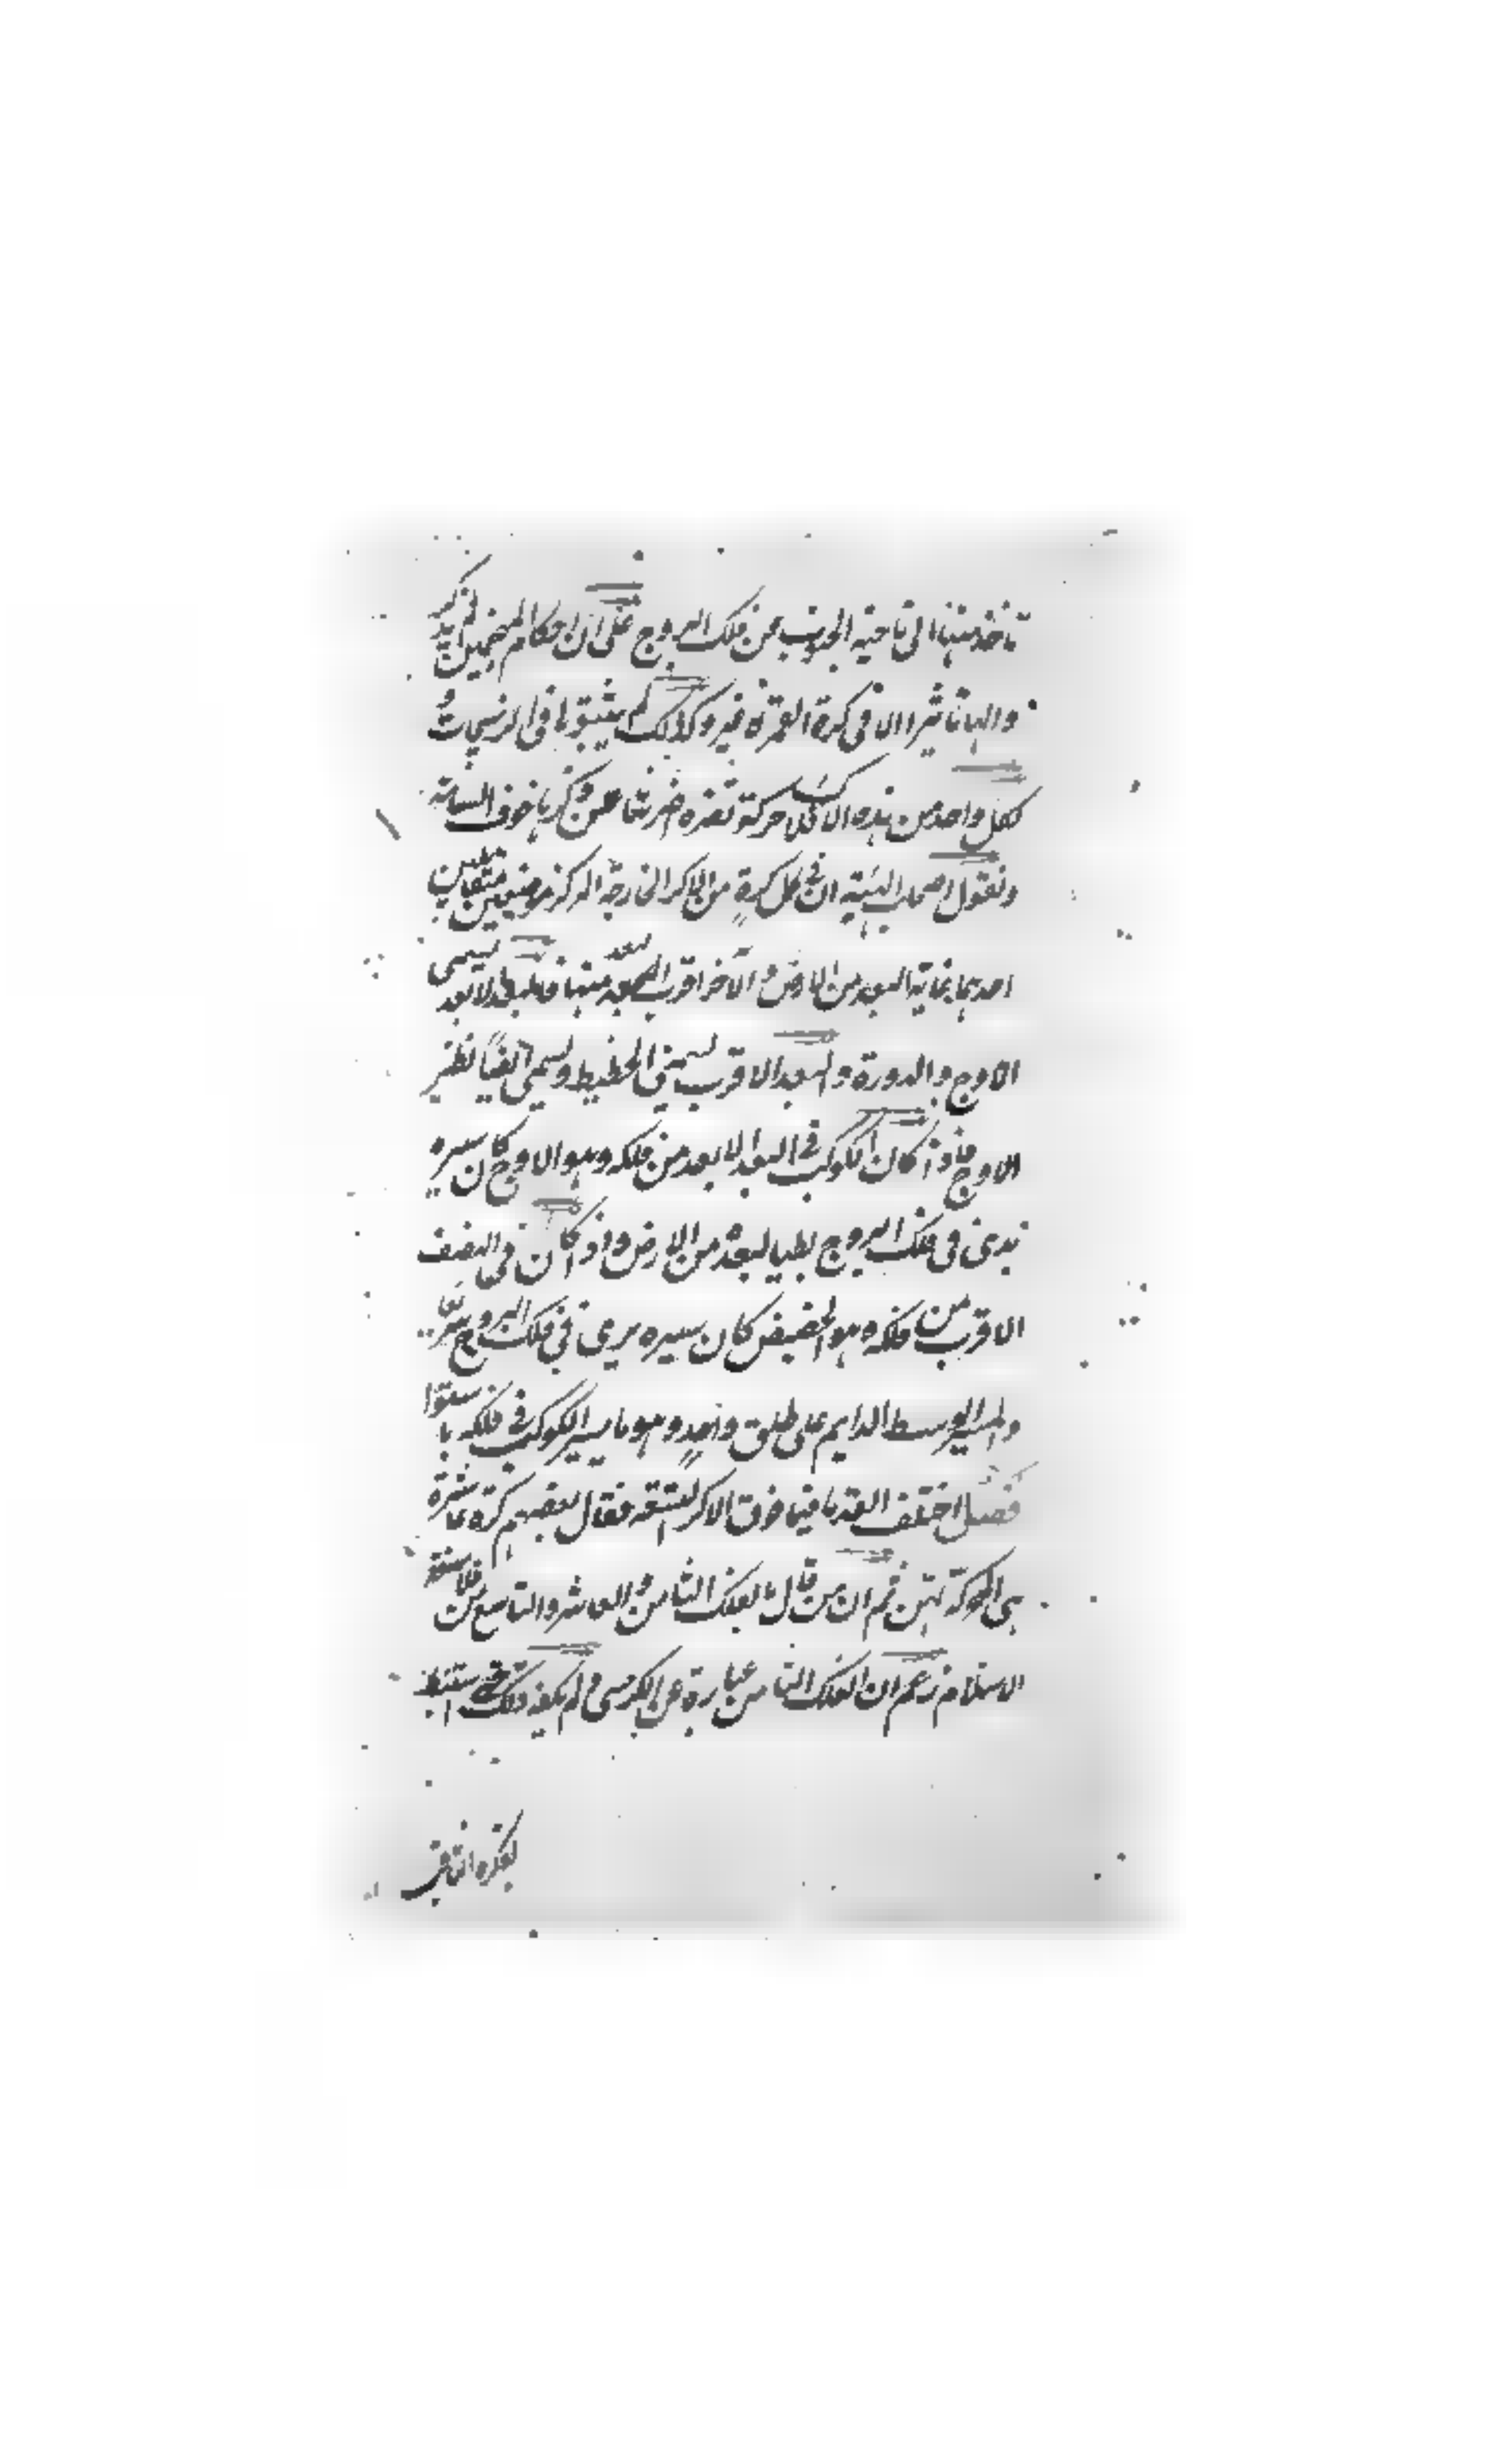 تأخذ منها الى ناحية الجنوب عن فلك البروج على ان احكام المنجمين لم يذكر
والها تاثيرا الا فى كرة القمر فى غير وكذلك لم يثبتوها فى الزيجات
لكل واحد من هذه الافلاك حركة تفرده اضربنا عن ذكرها خوف السامة
ونقول اصحاب الهيئة ان فى كل كرة من الاكر الخارجة المركز موضعين متقابلين
احدهما نهاية البعد من الارض والآخر اقرب البعد منها فالبعد الابعد يسمى
الاوج والدورة والبعد الاقرب يسمى الحضيض ويسمى ايضا نظير
الاوج فاذا كان الكوكب فى البعد الابعد من فلكه وهو الاوج كان سيره
يرى فى فلك البروج بطيا لبعده من الارض واذا كان فى النصف
الاقرب من فلكه وهو الحضيض كان سيره يرى فى فلك البروج سريعا
والمسير الوسط الدايم على طلق واحد وهو ما يسير الكوكب فى فلكه باستوا
فصل اختلف القدما فيما فوق الاكر التسعة فقال بعضهم كرة عاشرة
هى المحركة لهن ثم ان من قال بالفلك الثامن والعاشر والتاسع من فلاسفة
الاسلام زعم ان الفلك الثامن عبارة عن الكرسى ولم يكفه ذلك حتى استنبط
بفكره الثاقب